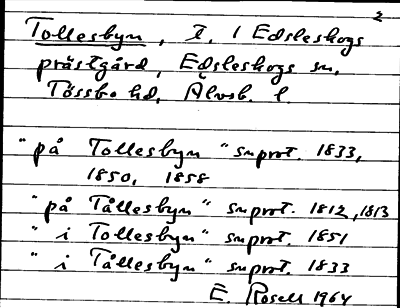 2
Tollesbyn, t. I Edsleskogs
prästgård, Edsleskogs sn,
Tössbo hd, Älvsb. l.
"på Tollesbyn" snprot. 1833,
1850, 1858
"på Tållesbyn" snprot. 1812, 1813
"i Tollesbyn" snprot. 1851
"i Tållesbyn" snprot. 1833
E. Rosell 1964